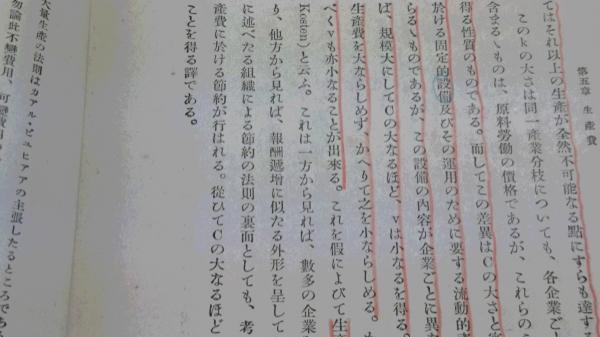 第五章 生産費
てはそれ以上の生産が全然不可能なる點にすらも達する
このkの大さは同一産業分枝についても、各企業ごと
含まるゝものは、原料勞働の價格であるが、これらのこ
得る性質のものである。而してこの差異はCの大さと密
於ける固定的設備及びその運用のために要する流動的
らるゝものであるが、この設備の内容が企業ごとに異
ば、規模大にしてCの大なるほど、vは小なるを得る。
生産費を大ならしめず、かへりて之を小ならしめる。
べくvも亦小なることが出來る。これを假によびて生
Kosten)と云ふ。これは一方から見れば、數多の企業
り、他方から見れば、報酬遞増に似たる外形を呈して
に述べたる組織による節約の法則の裏面としても、考
産費に於ける節約が行はれる。從ひてCの大なるほど
ことを得る譯である。
大量生産の法則はカアル・ビュヒアアの主張したるところであ
勿論此不變費用、可變費用の